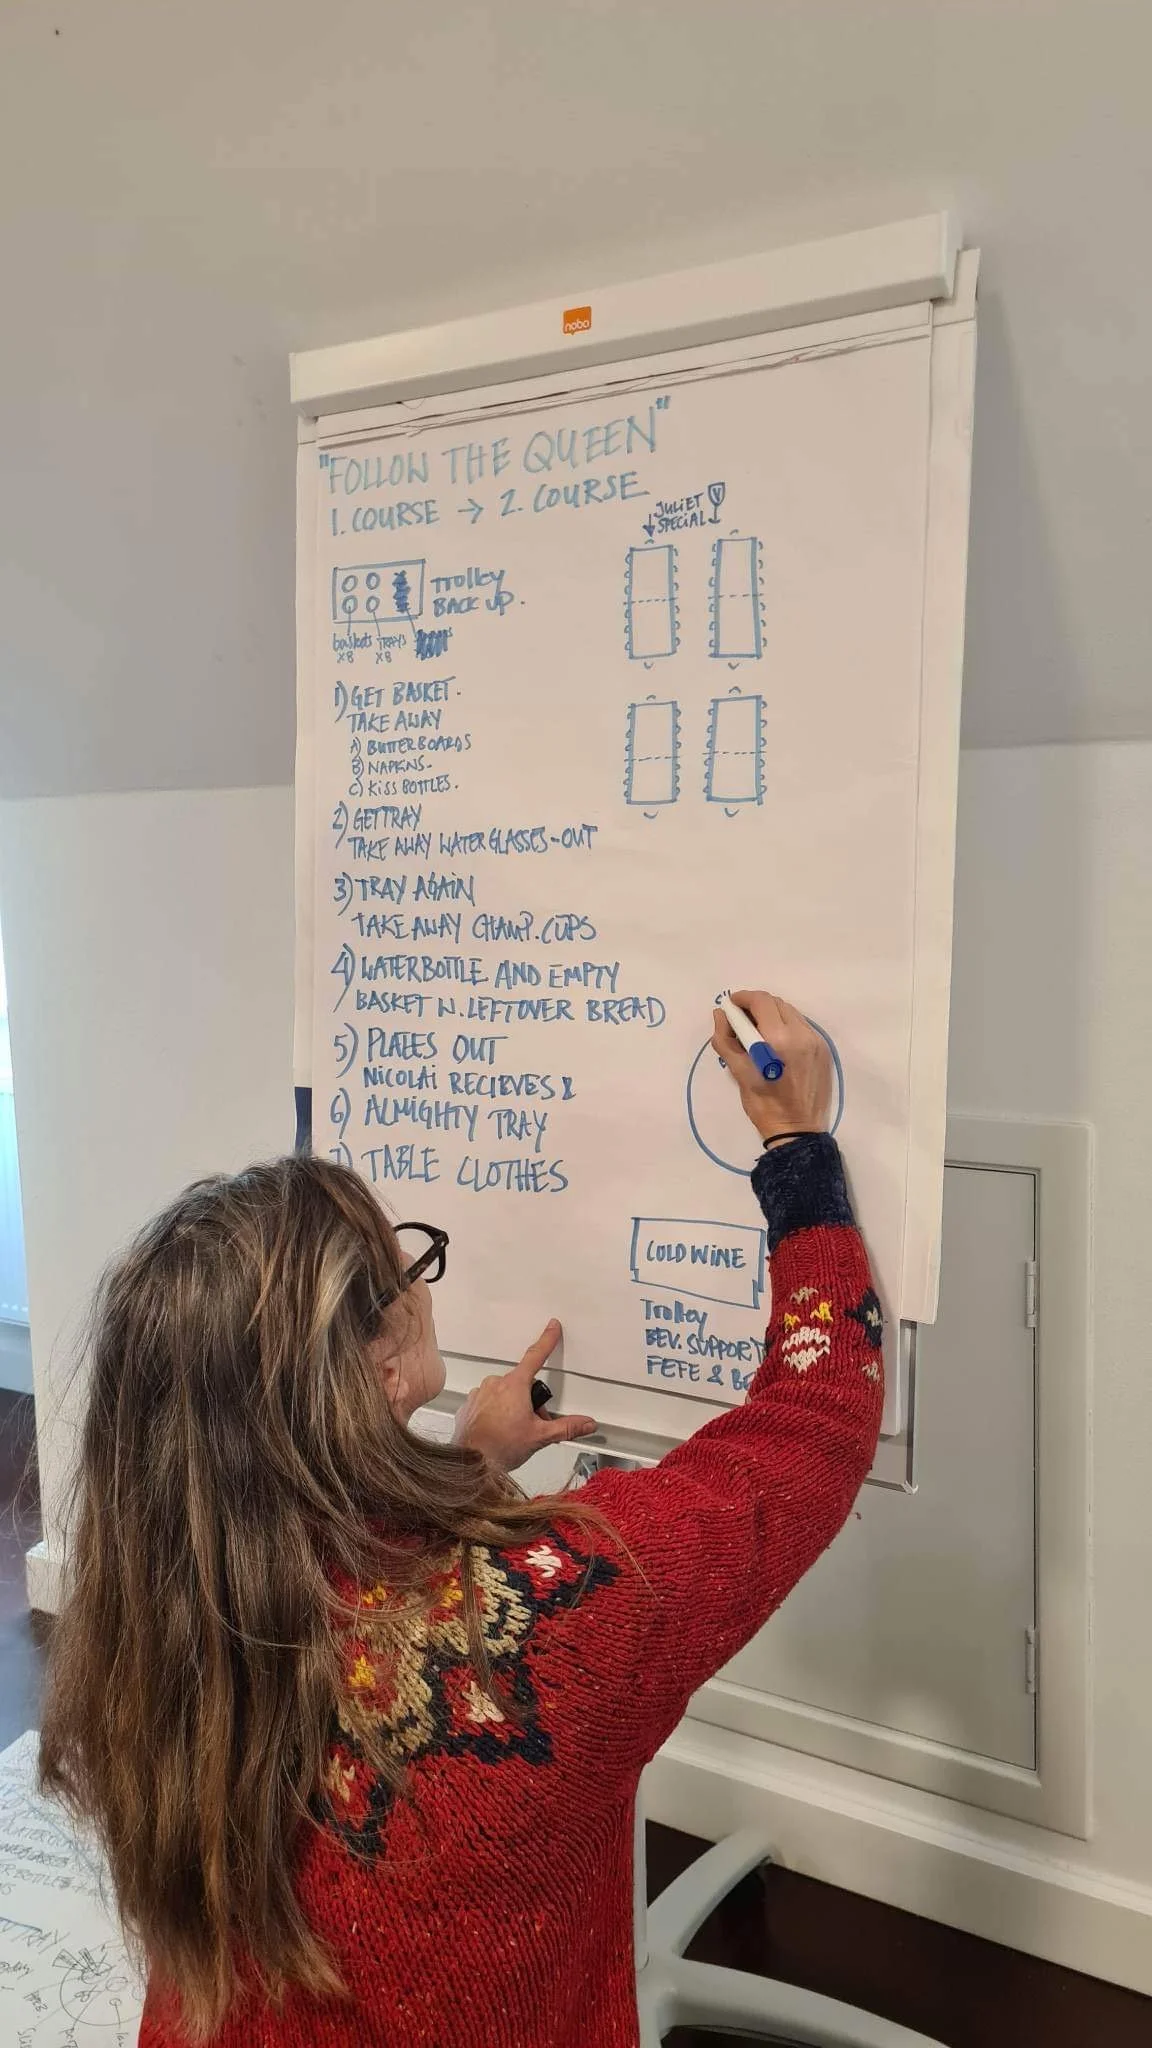 nobo
"FOLLOW THE QUEEN"
1. COURSE → 2. COURSE
JULIET
SPECIAL
V
Trolley
BACK UP.
baskets TRAYS
x8 x8
1) GET BASKET.
TAKE AWAY
A) BUTTERBOARDS
B) NAPKINS.
C) KISS BOTTLES.
2) GET TRAY
TAKE AWAY WATERGLASSES-OUT
3) TRAY AGAIN
TAKE AWAY CHAMP. CUPS
4) WATERBOTTLE AND EMPTY
BASKET W. LEFTOVER BREAD
5) PLATES OUT
NICOLAI RECIEVES &
6) ALMIGHTY TRAY
7) TABLE CLOTHES
COLD WINE
Trolley
BEV. SUPPORT
FEFE & BE
TRAY